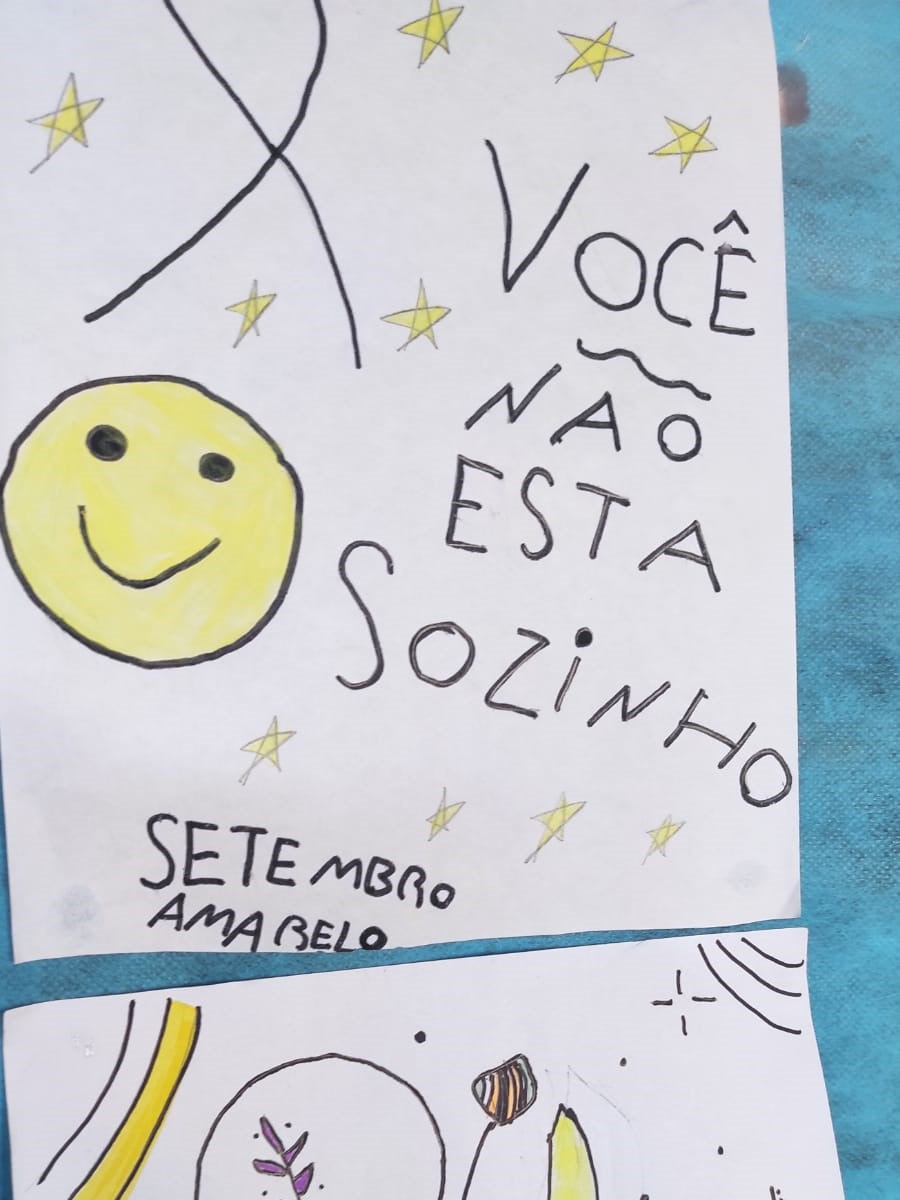 VOCÊ
NÃO
ESTA
SOZINHO
SETEMBRO
AMARELO